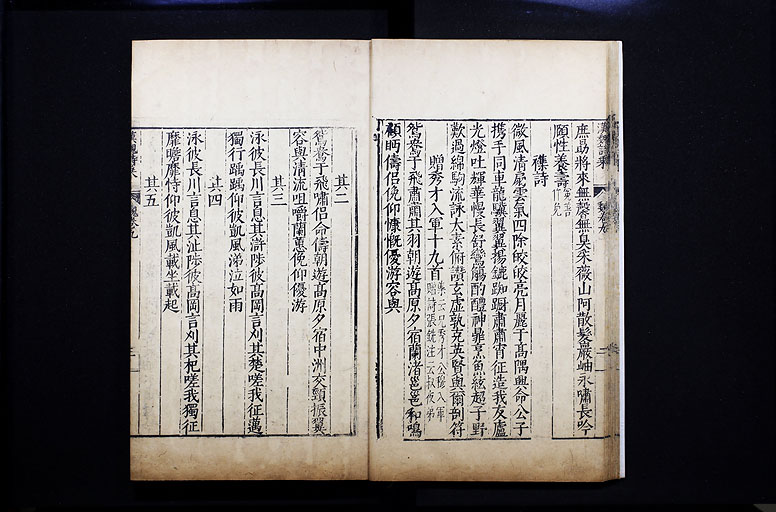 庶勗將來無馨無臭采薇山阿散髮巖岫永嘯長吟
頤性養壽
雜詩
微風清扇雲氣四除皎皎亮月麗于高隅興命公子
携手同車龍驥翼翼揚鑣踟蹰肅肅宵征造我友廬
光燈吐輝華幔長舒鸞觴酌醴神鼎烹魚絃超子野
歎過綿駒流詠太素俯讚玄虛孰克英賢與爾剖符
贈秀才入軍十九首
鴛鴦于飛肅肅其羽朝遊高原夕宿蘭渚邕邕和鳴
顧眄儔侶俛仰慷慨優游容與
其二
鴛鴦于飛嘯侶命儔朝遊高原夕宿中洲交頸振翼
容與清流咀嚼蘭蕙俛仰優游
其三
泳彼長川言息其滸陟彼高岡言刈其楚嗟我征邁
獨行踽踽仰彼凱風涕泣如雨
其四
泳彼長川言息其沚陟彼高岡言刈其杞嗟我獨征
靡瞻靡恃仰彼凱風載坐載起
其五